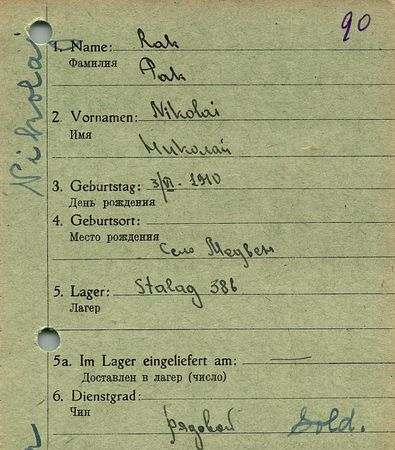 90
Nikolai
1. Name: Rak
Фамилия Рак
2. Vornamen: Nikolai
Имя
Николай
3. Geburtstag: 3/VI. 1910
День рождения
4. Geburtsort:
Место рождения
Село Медвен
5. Lager: Stalag 386
Лагер
5a. Im Lager eingeliefert am: —
Доставлен в лагер (число)
6. Dienstgrad:
Чин
рядовой Sold.